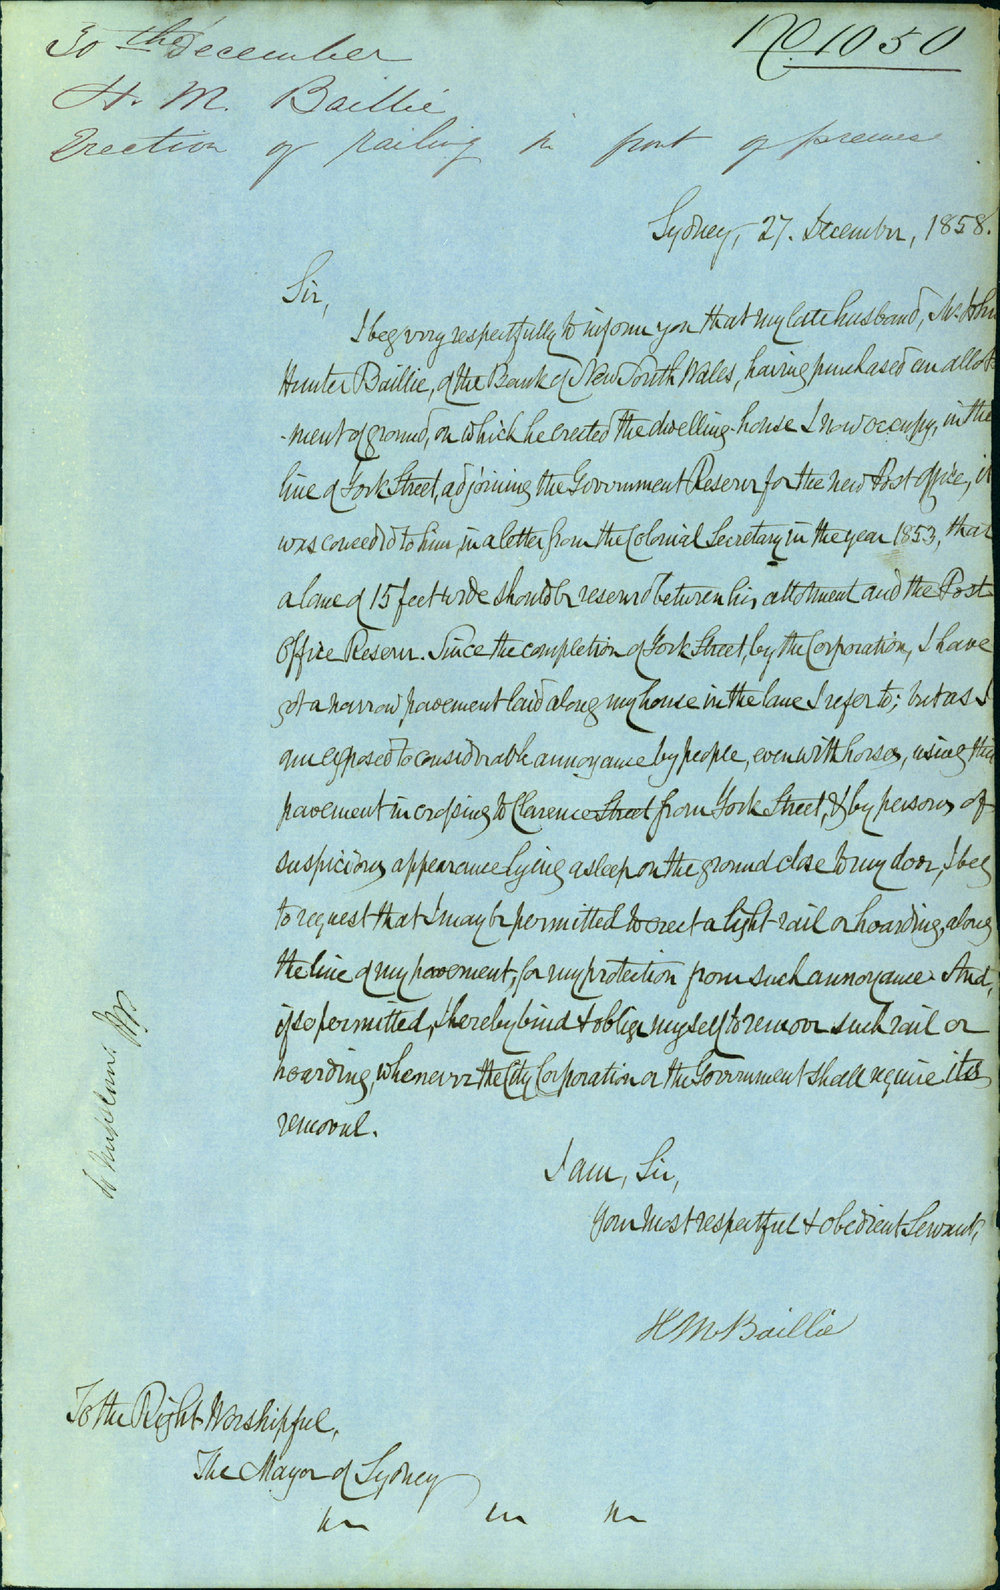 No. 1050
30th December
H. M. Baillie
Erection of railing in front of premises
Sydney, 27. December, 1858.
Sir,
I beg very respectfully to inform you that my late husband, Mr. John
Hunter Baillie, of the Bank of New South Wales, having purchased an allot-
-ment of ground, on which he erected the dwelling-house I now occupy, in the
line of York Street, adjoining the Government Reserve for the new Post Office, it
was conceded to him, in a letter from the Colonial Secretary in the year 1853, that
a lane of 15 feet wide should be reserved between his allotment and the Post
Office Reserve. Since the completion of York Street, by the Corporation, I have
got a narrow pavement laid along my house in the lane I refer to; but as I
am exposed to considerable annoyance by people, even with horses, using this
pavement in crossing to Clarence Street from York Street, & by persons of
suspicious appearance lying asleep on the ground close to my door, I beg
to request that I may be permitted to erect a light rail or hoarding, along
the line of my pavement, for my protection from such annoyance. And,
if so permitted, I hereby bind & oblige myself to remove such rail or
hoarding, whenever the City Corporation or the Government shall require its
removal.
I am, Sir,
Your most respectful & obedient Servant,
H M Baillie
To the Right Worshipful,
The Mayor of Sydney